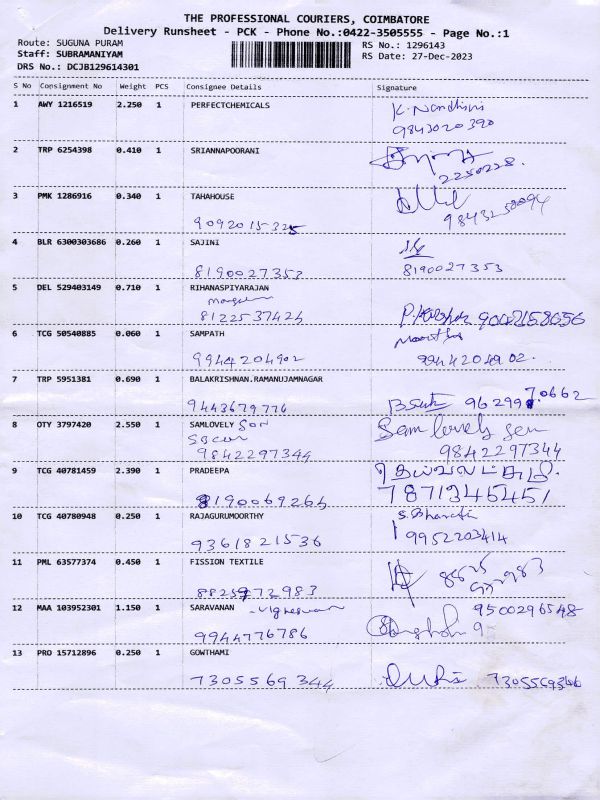 THE PROFESSIONAL COURIERS, COIMBATORE
Delivery Runsheet - PCK - Phone No.:0422-3505555 - Page No.:1
Route: SUGUNA PURAM
RS No.: 1296143
Staff: SUBRAMANIYAM
RS Date: 27-Dec-2023
DRS No.: DCJB129614301
S No Consignment No Weight PCS Consignee Details Signature
1 AWY 1216519 2.250 1 PERFECTCHEMICALS K. Nandhini
9843020390
2 TRP 6254398 0.410 1 SRIANNAPOORANI
2250228.
3 PMK 1286916 0.340 1 TAHAHOUSE
9092015325 9843250094
4 BLR 6300303686 0.260 1 SAJINI
8190027353 8190027353
5 DEL 529403149 0.710 1 RIHANASPIYARAJAN
8122537426
6 TCG 50540885 0.060 1 SAMPATH
9944204902 9944204902.
7 TRP 5951381 0.690 1 BALAKRISHNAN.RAMANUJAMNAGAR
9443679776
8 OTY 3797420 2.550 1 SAMLOVELY SON Sam lovely Sen
9842297344 9842297344
9 TCG 40781459 2.390 1 PRADEEPA
8190069264 7871345451
10 TCG 40780948 0.250 1 RAJAGURUMOORTHY S. Bharati
9361821536 9952203414
11 PML 63577374 0.450 1 FISSION TEXTILE
8825972983
12 MAA 103952301 1.150 1 SARAVANAN 9500296548
9944776786
13 PRO 15712896 0.250 1 GOWTHAMI
7305569344 7305569344